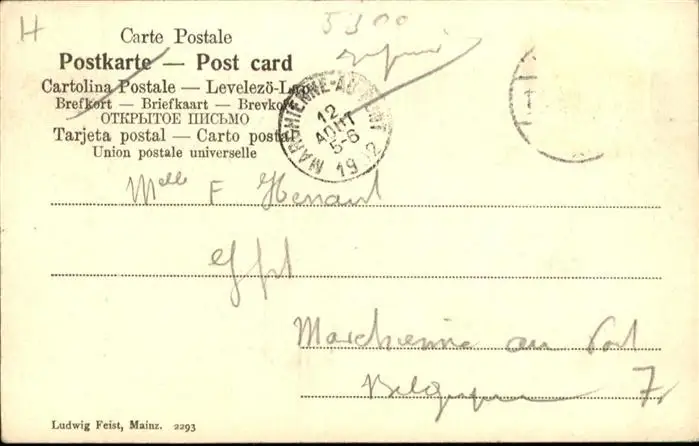 H
5300
Carte Postale
Postkarte — Post card
Cartolina Postale — Levelezö-Lap
Brefkort — Briefkaart — Brevkort
ОТКРЫТОЕ ПИСЬМО
Tarjeta postal — Carto postal
Union postale universelle
MARCHIENNE-AU-PONT
12
AOUT
5-6
1902
Melle F Henaut
Marchienne au Pont
Belgique
Ludwig Feist, Mainz. 2293